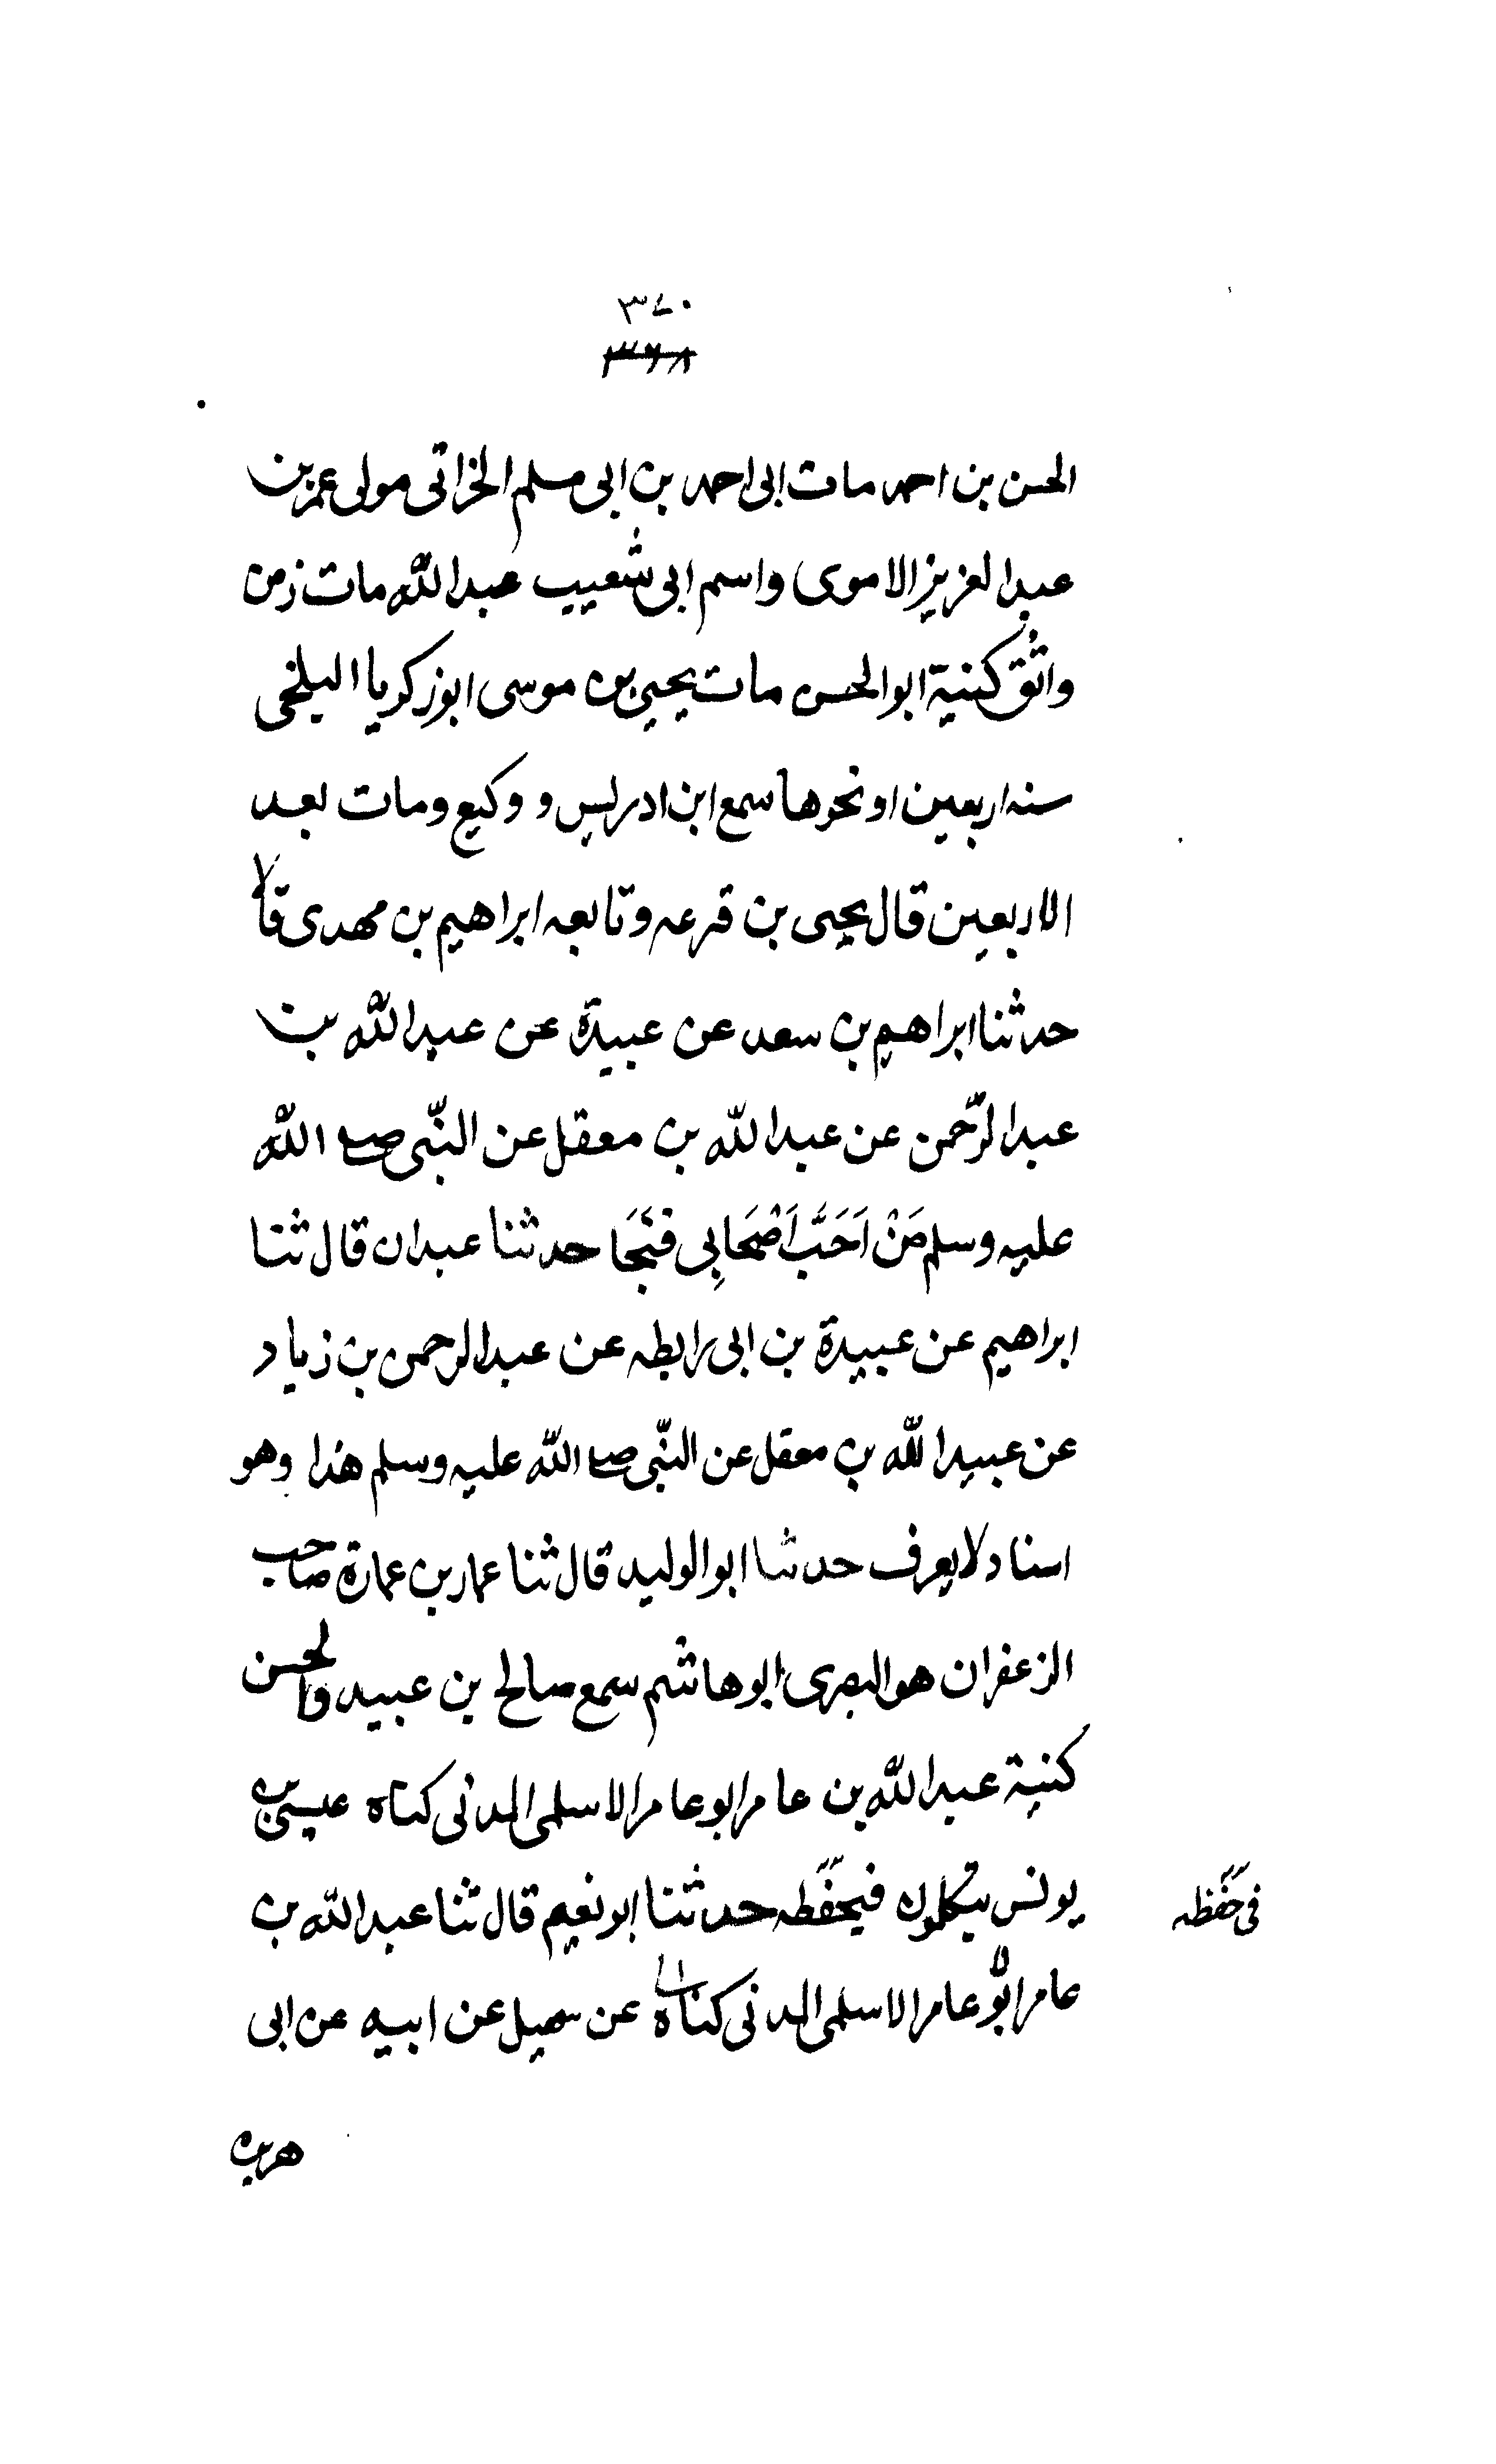 ٣٧٠
٣٦٨
الحسن بن احمد مات ابى احمد بن ابى مسلم الخراتى مولى عمر بن
عبد العزيز الاموى واسم ابى شعيب عبد الله مات زمن
واثق كنية ابو الحسن مات يحيى بن موسى ابو زكريا البلخى
سنه اربعين او نحوها سمع ابن ادريس و وكيع ومات بعد
الاربعين قال يحيى بن قزعه وتابعه ابراهيم بن مهدى قالا
حدثنا ابراهيم بن سعد عن عبيدة عن عبد الله بن
عبد الرّحمن عن عبد الله بن معقل عن النّبى صلى الله
عليه وسلم مَنْ اَحَبَّ اَصْحَابِى حدثنا عبدان قال ثنا
ابراهيم عن عبيدة بن ابى رابطه عن عبد الرحمن بن زياد
عن عبيد الله بن معقل عن النّبى صلى الله عليه وسلم هذا وهو
اسناد لا يعرف حدثنا ابو الوليد قال ثنا عمار بن عمارة صاحب
الزعفران هو البصرى ابو هاشم سمع صالح بن عبيد والحسن
كنية عبد الله بن عامر ابو عامر الاسلمى المدنى كناه عيسى بن
يونس يتكلمون فيحفّظه حدثنا ابو نعيم قال ثنا عبد الله بن
فى حفّظه
عامر ابو عامر الاسلمى المدنى كناه عن سهيل عن ابيه عن ابى
هريره